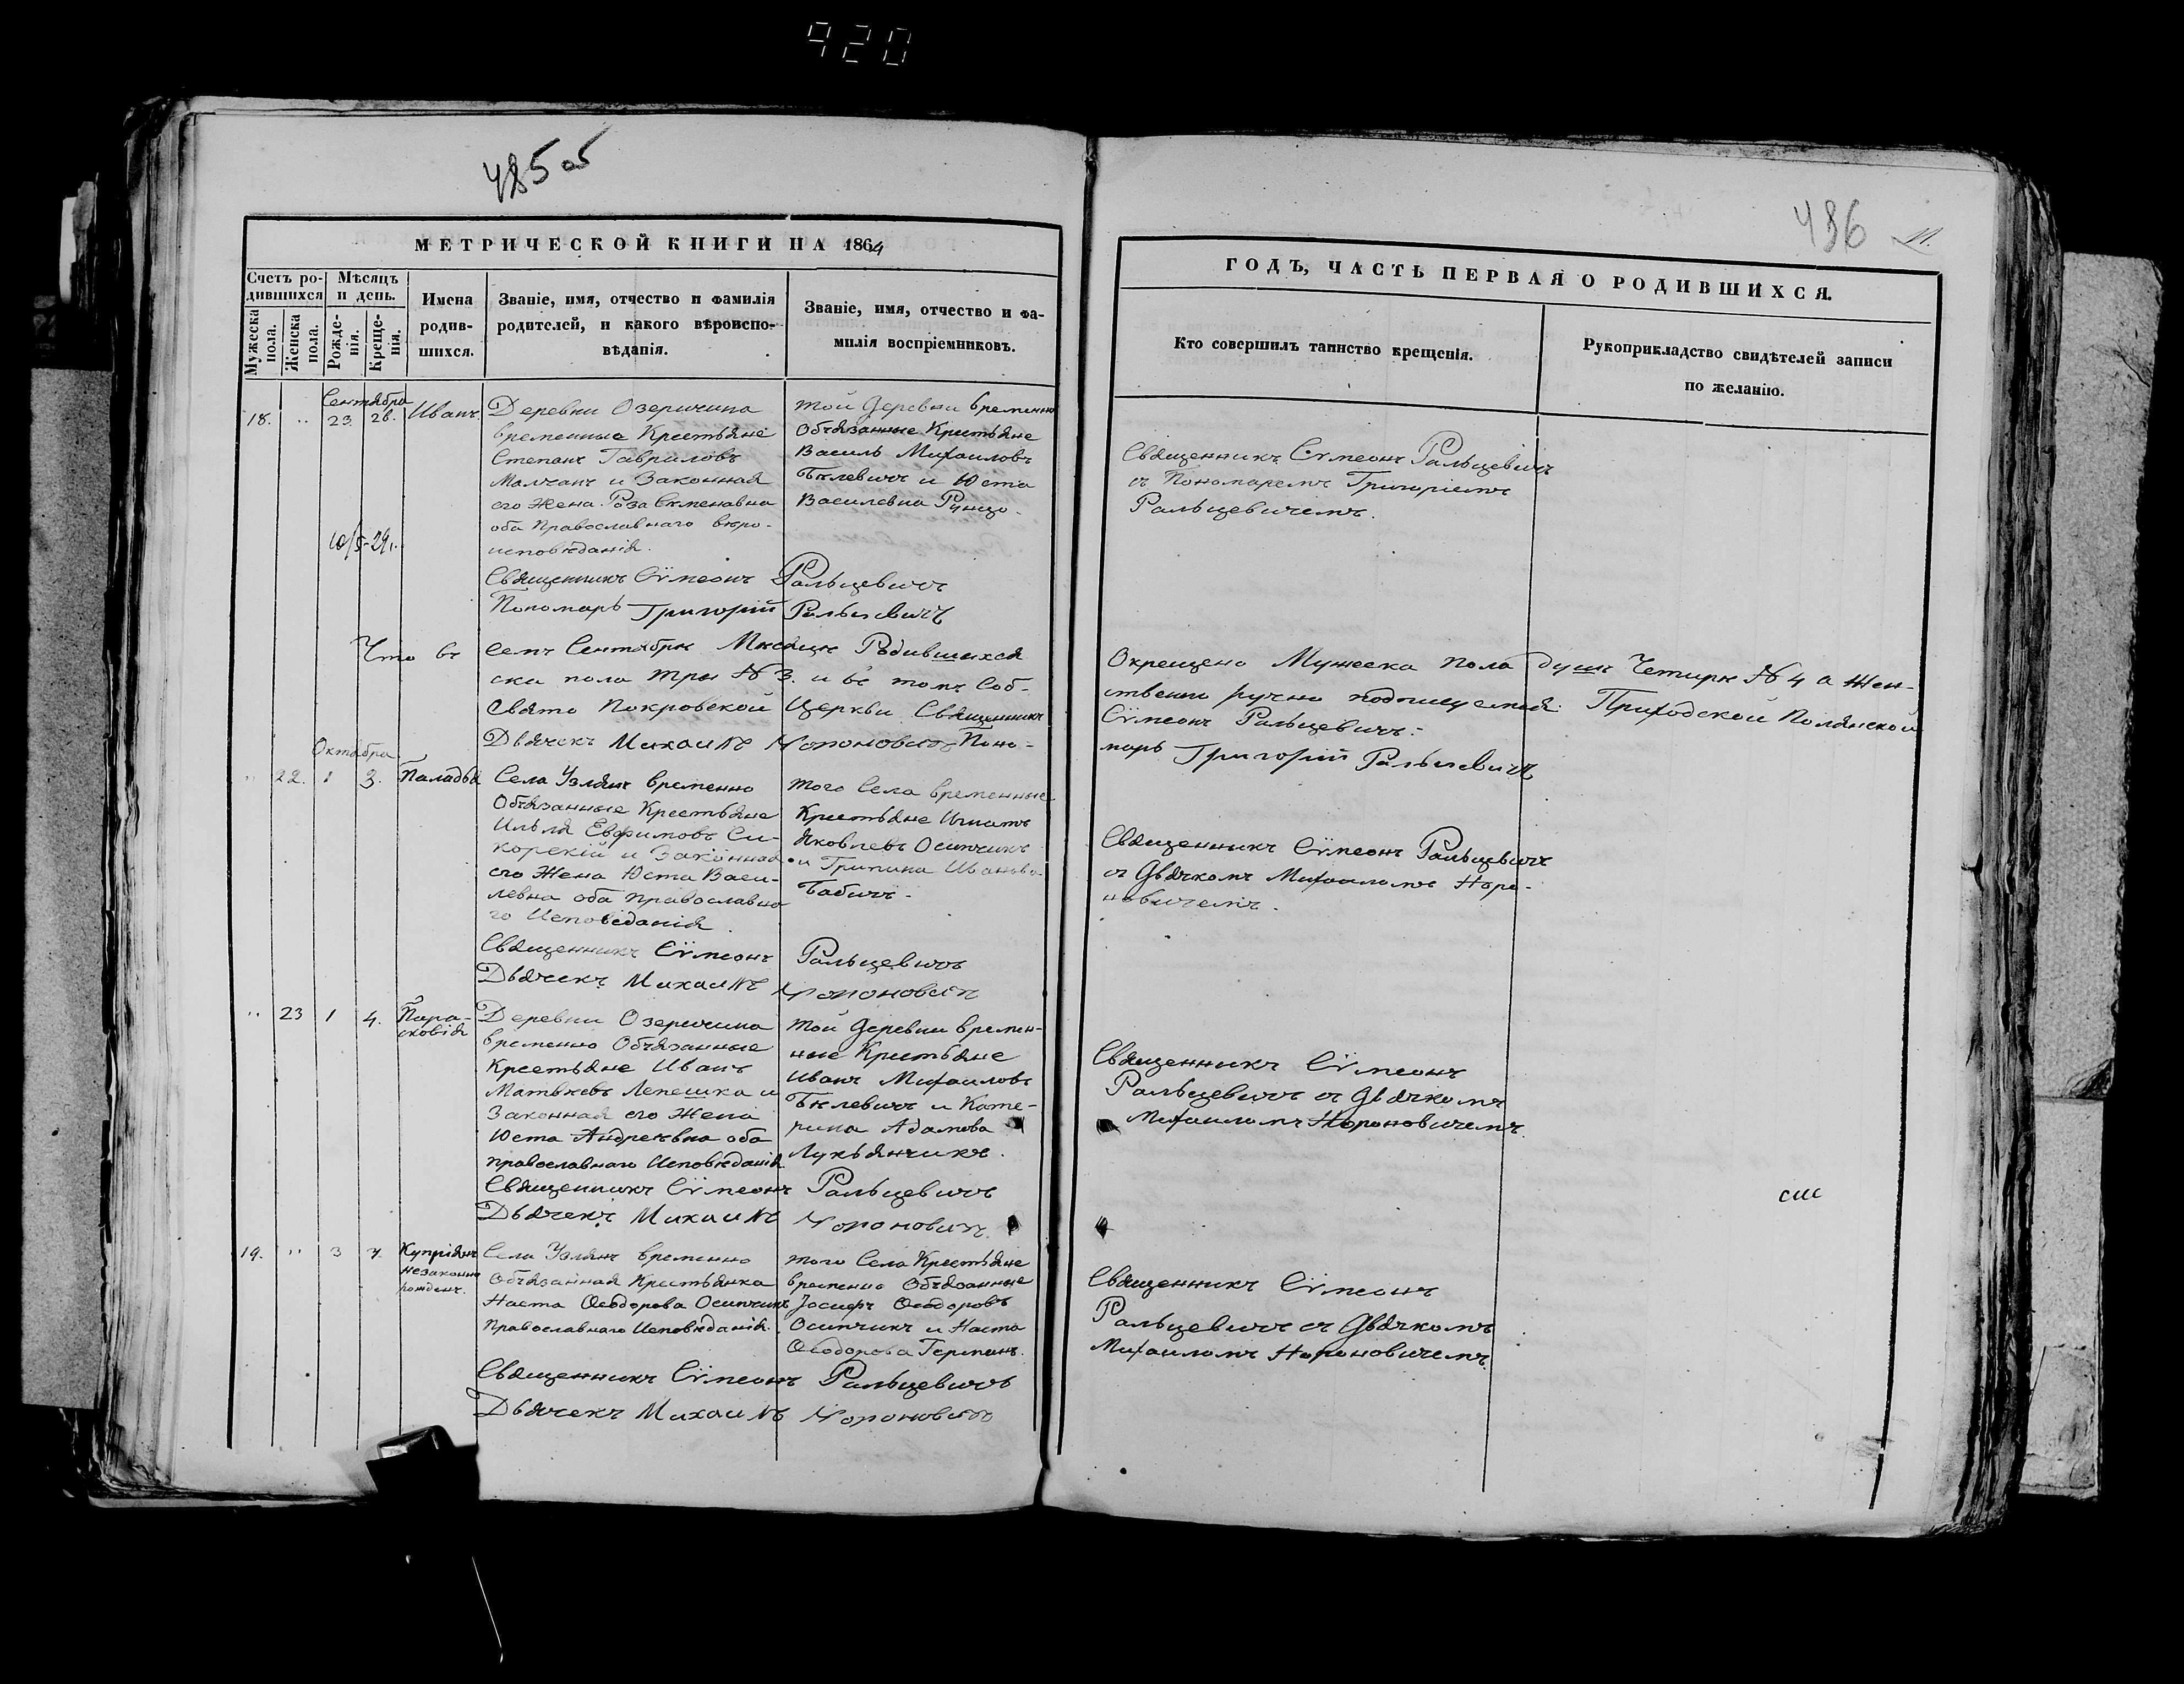 920
485 об
486
11.
МЕТРИЧЕСКОЙ КНИГИ НА 1864
ГОДЪ, ЧАСТЬ ПЕРВАЯ О РОДИВШИХСЯ.
Счетъ ро-
дившихся
Мѣсяцъ
и день.
Мужеска
пола.
Женска
пола.
Рожде-
нія.
Креще-
нія.
Имена
родив-
шихся.
Званіе, имя, отчество и фамилія
родителей, и какого вѣроиспо-
вѣданія.
Званіе, имя, отчество и фа-
милія воспріемниковъ.
Кто совершилъ таинство крещенія.
Рукоприкладство свидѣтелей записи
по желанію.
Сентября
18. " 23. 26. Иванъ.
Деревни Озеричина
временные Крестьяне
Степанъ Гавриловъ
Малчанъ и Законная
его Жена Роза
оба Православнаго вѣро-
исповѣданія.
той деревни временно
Обязанные Крестьяне
Василь Михаиловъ
Бѣлевичъ и Юста
Василевна
Священникъ Сѵмеонъ Ральцевичъ
съ Пономаремъ Григоріемъ
Ральцевичемъ.
Священникъ Сѵмеонъ Ральцевичъ
Пономарь Григорій Ральцевичъ
Что въ семъ Сентябрѣ Мѣсяцѣ Родившихся
Окрещено Мужеска пола душъ Четырѣ № 4 а Жен-
ска пола три № 3. и въ томъ Соб-
ственно ручно подписуемся: Приходской Полянской
Свято Покровской Церкви Священникъ
Сѵмеонъ Ральцевичъ.
Дьячекъ Михаилъ Нороновичъ Поно-
марь Григорій Ральцевичъ
Октября
" 22. 1 3. Паладья
Села Узлянъ временно
Обязанные Крестьяне
Илья Евфимовъ Си-
корскій и Законная
его Жена Юста Васи-
левна оба православна
го Исповѣданія.
того Села временные
Крестьяне Игнатъ
Яковлевъ Осипчикъ
и Грипина Иванова
Бабичъ.
Священникъ Сѵмеонъ Ральцевичъ
съ Дьячкомъ Михаиломъ Норо-
новичемъ.
Священникъ Сѵмеонъ Ральцевичъ
Дьячекъ Михаилъ Нороновичъ
" 23 1 4. Пара-
сковія
Деревни Озеричина
временно Обязанные
Крестьяне Иванъ
Матвѣевъ Лепешка и
Законная его Жена
Юста Андреевна оба
православнаго Исповѣданія.
той деревни времен-
ные Крестьяне
Иванъ Михаиловъ
Бѣлевичъ и Кате-
рина Адамова
Лукьянчикъ.
Священникъ Сѵмеонъ
Ральцевичъ съ Дьячкомъ
Михаиломъ Нороновичемъ.
Священникъ Сѵмеонъ Ральцевичъ
Дьячекъ Михаилъ Нороновичъ
19. " 3 7. Купріянъ
незаконно
рожденъ.
Села Узлянъ временно
Обязанная Крестьянка
Наста Ѳеодорова Осипчикъ
Православнаго Исповѣданія.
того Села Крестьяне
временно Обязанные
Іосифъ Ѳеодоровъ
Осипчикъ и Наста
Ѳеодорова Германъ.
Священникъ Сѵмеонъ
Ральцевичъ съ Дьячкомъ
Михаиломъ Нороновичемъ.
Священникъ Сѵмеонъ Ральцевичъ
Дьячекъ Михаилъ Нороновичъ